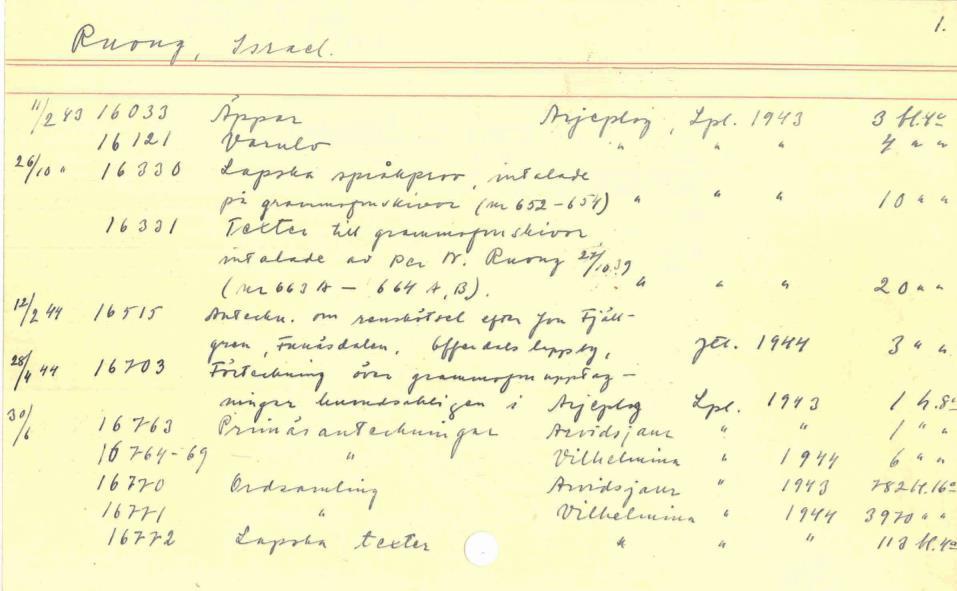 1.
Ruong, Israel.
11/2 43 16033 Äppar Arjeplog, Lpl. 1943 3 bl. 4º
16121 Varulv " " " 4 " "
26/10 " 16330 Lapska språkprov, intalade
på grammofonskivor (nr 652-654) " " " 10 " "
16331 Texter till grammofonskivor
intalade av Per N. Ruong 27/10 39
(nr 663 A - 664 A, B). " " " 20 " "
12/2 44 16515 Anteckn. om renskötsel efter Jon Fjäll-
gren, Funäsdalen, Offerdals lappby, Jtl. 1944 3 " "
28/4 44 16703 Förteckning över grammofonupptag-
ningar huvudsakligen i Arjeplog Lpl. 1943 1 h. 8º
30/6 16763 Primäranteckningar Arvidsjaur " " 1 " "
16764-69 " Vilhelmina " 1944 6 " "
16770 Ordsamling Arvidsjaur " 1943 782 bl. 16º
16771 " Vilhelmina " 1944 3970 " "
16772 Lapska texter " " " 113 bl. 4º